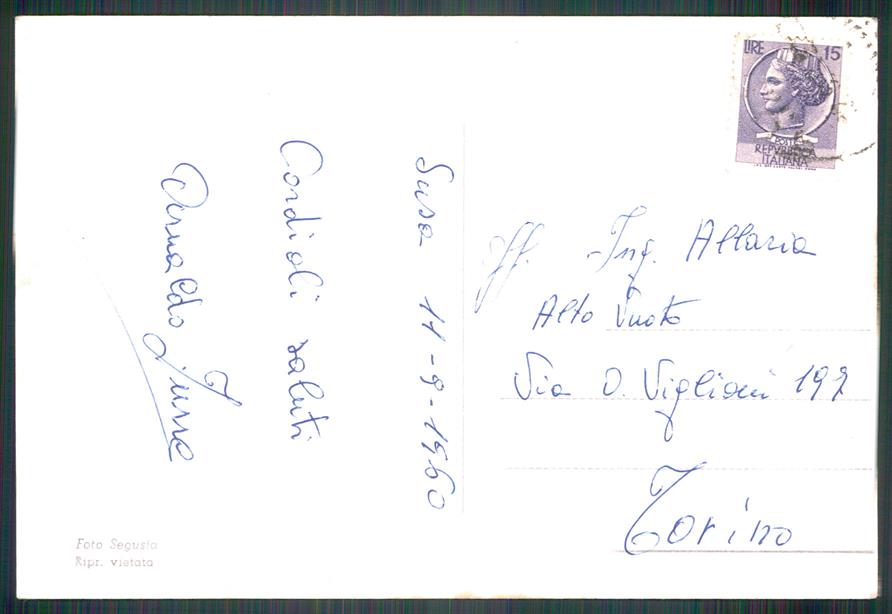 Susa 11-9-1960
Cordiali saluti
Arnaldo
LIRE 15
POSTE
REPVBBLICA
ITALIANA
Ing. Allaria
Alto Vuoto
Via O. Vigliani 197
Torino
Foto Segusia
Ripr. vietata